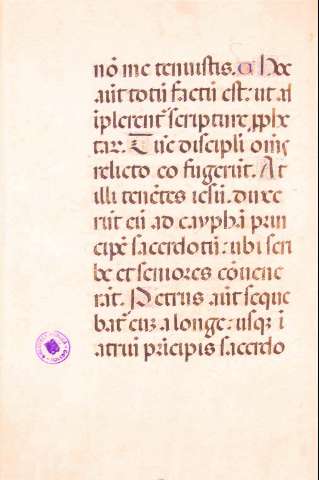 nō me tenuistis. Hec
aūt totū factū est: ut ad
īplerent᷑ scripture ꝓphe
tar̄. Tūc discipli om̄s
relicto eo fugerūt. At
illi tenētes iesū. duxe
rūt eū ad caypha prin
cipē sacerdotū: ubi scri
be et seniores cōuene
rāt. Petrus aūt seque
bat᷑ eū a longe: usqꝫ ī
atriū prīcipis sacerdo